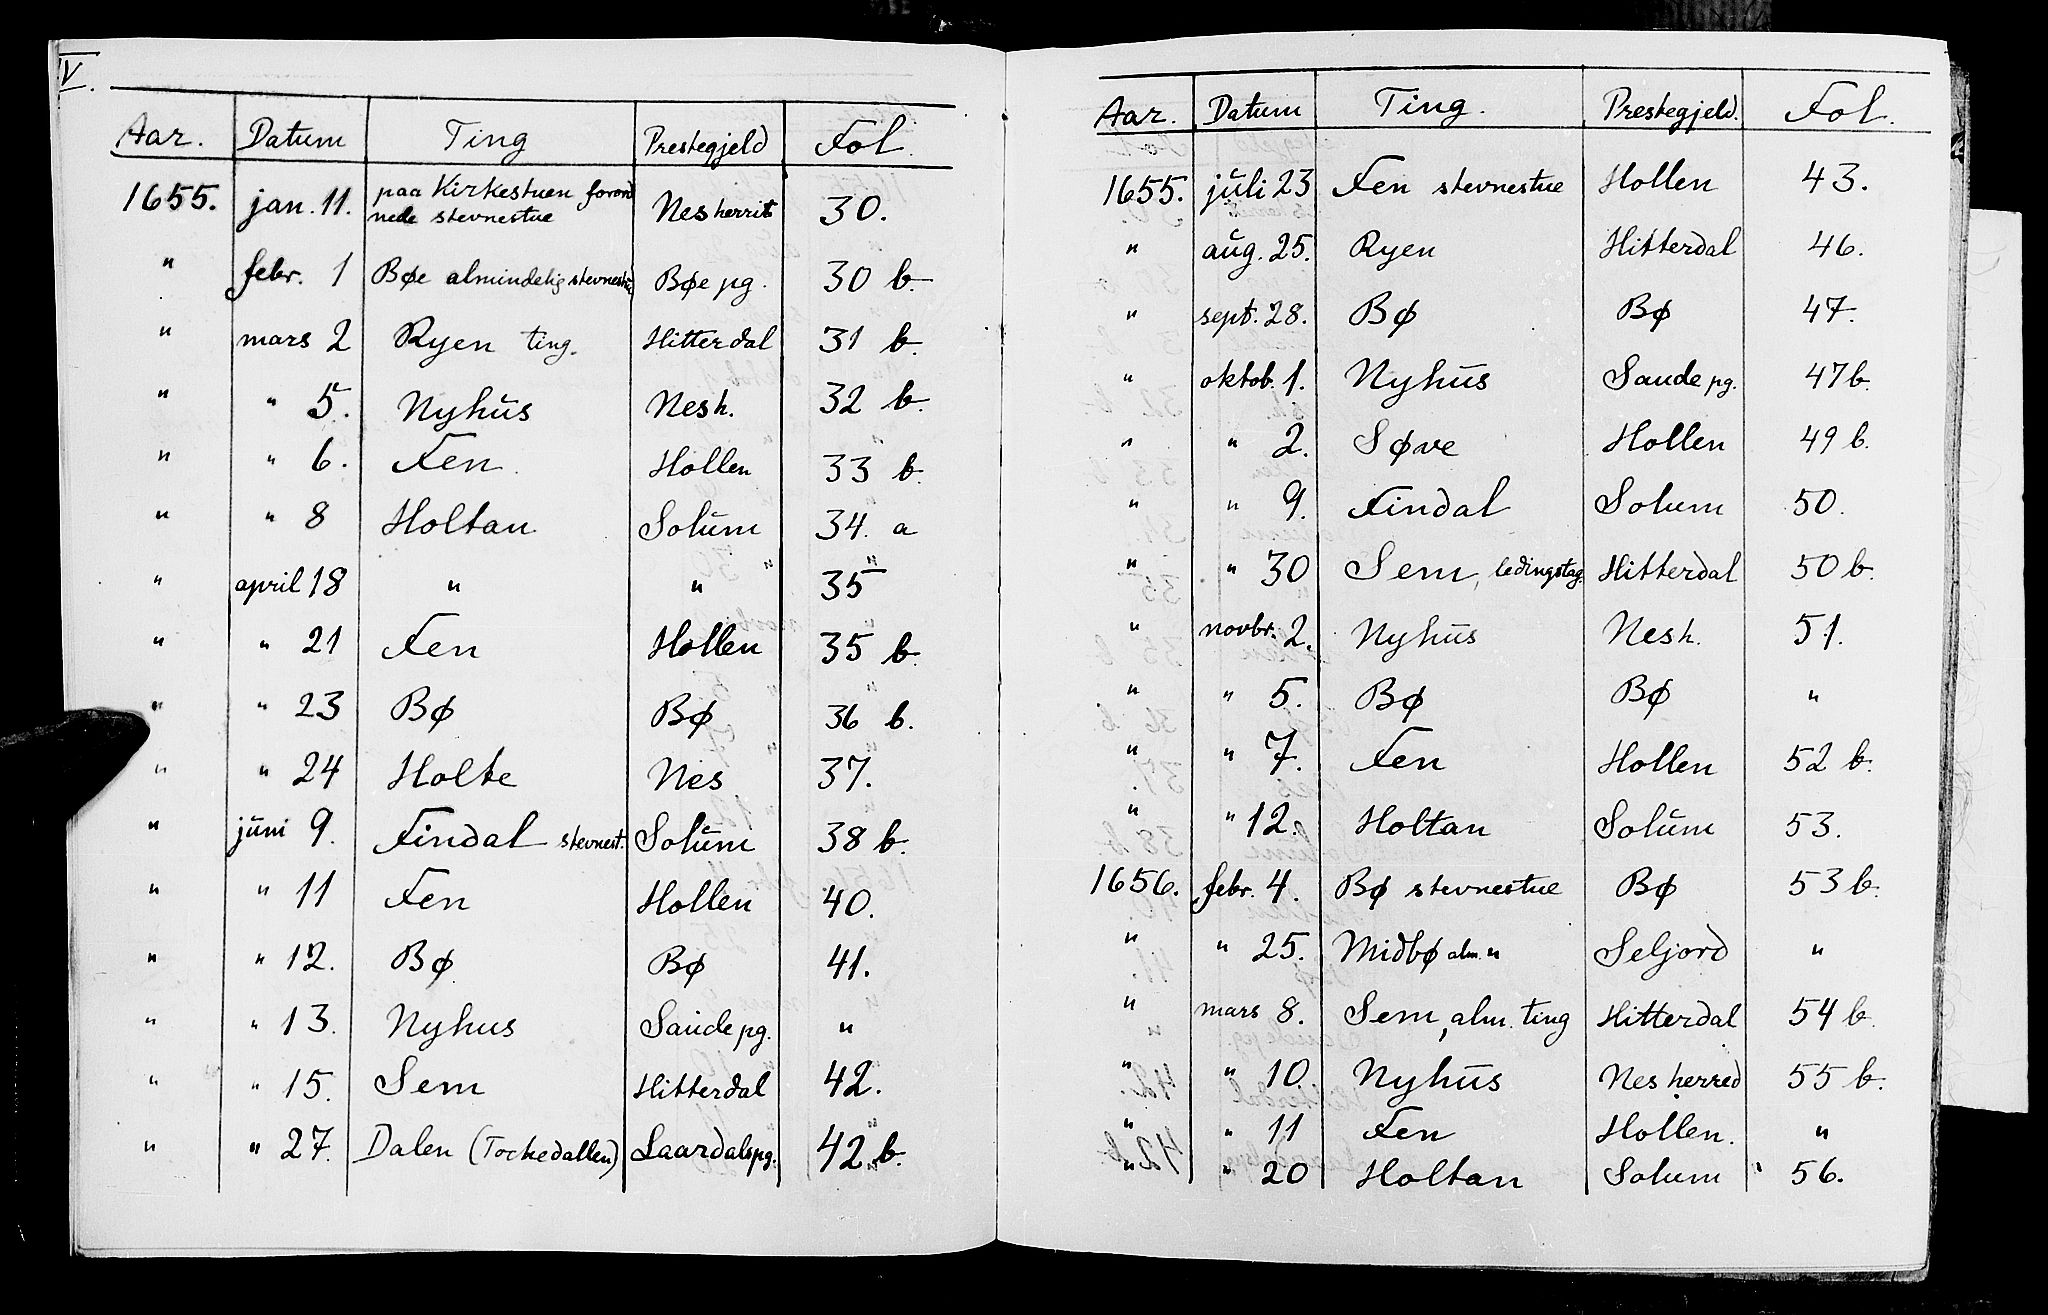 V.
Aar. Datum Ting Prestegjeld Fol.
1655. jan. 11. paa Kirkestuen forord
nede stevnestue Nesherrit 30.
" febr. 1 Bøe almindelig stevnestue Bøe pg. 30 b.
" mars 2 Ryen ting. Hitterdal 31 b.
" " 5. Nyhus Nesh. 32 b.
" " 6. Fen. Hollen 33 b.
" " 8 Holtan Solum 34. a
" april 18 " " 35
" " 21 Fen Hollen 35 b.
" " 23 Bø Bø 36 b.
" " 24 Holte Nes 37.
" juni 9. Findal stevnest. Solum 38 b.
" " 11 Fen Hollen 40.
" " 12. Bø Bø 41.
" " 13. Nyhus Saude pg. "
" " 15. Sem Hitterdal 42.
" " 27. Dalen (Tockedallen) Laardals pg. 42 b.
Aar. Datum Ting. Prestegjeld. Fol.
1655. juli 23 Fen stevnestue Hollen 43.
" aug. 25. Ryen Hitterdal 46.
" sept. 28. Bø Bø 47.
" oktob. 1. Nyhus Saude pg. 47 b.
" " 2. Søve Hollen 49 b.
" " 9. Findal Solum 50.
" " 30 Sem, ledingstag. Hitterdal 50 b.
" novbr. 2. Nyhus Nesh. 51.
" " 5. Bø Bø "
" " 7. Fen Hollen 52 b.
" " 12. Holtan Solum 53.
1656. febr. 4. Bø stevnestue Bø 53 b.
" " 25. Midbø alm. " Seljord "
" mars 8. Sem, alm. ting Hitterdal 54 b.
" " 10. Nyhus Nesherred 55 b.
" " 11 Fen Hollen. "
" " 20 Holtan Solum 56.